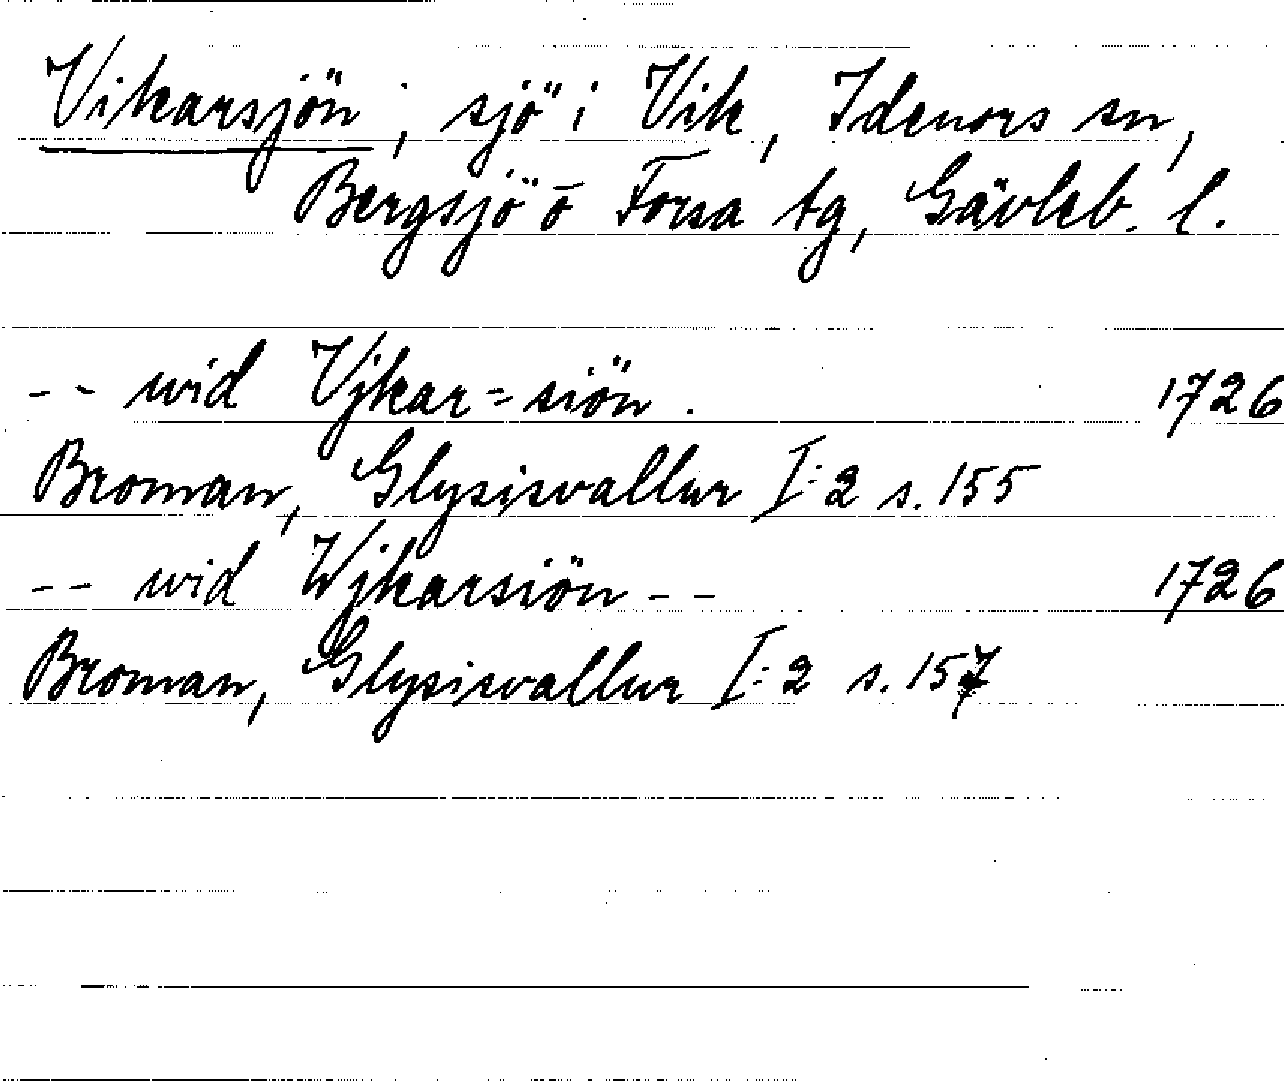 Vikarsjön; sjö i Vik, Idenors sn,
Bergsjö o Forsa tg, Gävleb. l.
-- wid Vjkar=siön. 1726
Broman, Glysisvallur I:2 s. 155
-- wid Wjkarsiön -- 1726
Broman, Glysisvallur I:2 s. 157